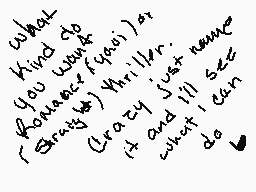 what
kind do
you want
Romance (yaoi) or
(Straight) thriller.
Crazy just name
it and ill see
what i can
do